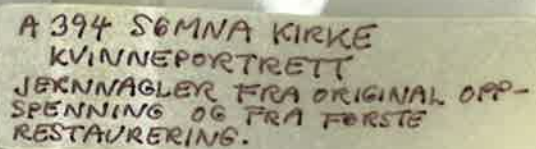 A 394 SÖMNA KIRKE
KVINNEPORTRETT
JERNNAGLER FRA ORIGINAL OPP-
SPENNING OG FRA FØRSTE
RESTAURERING.